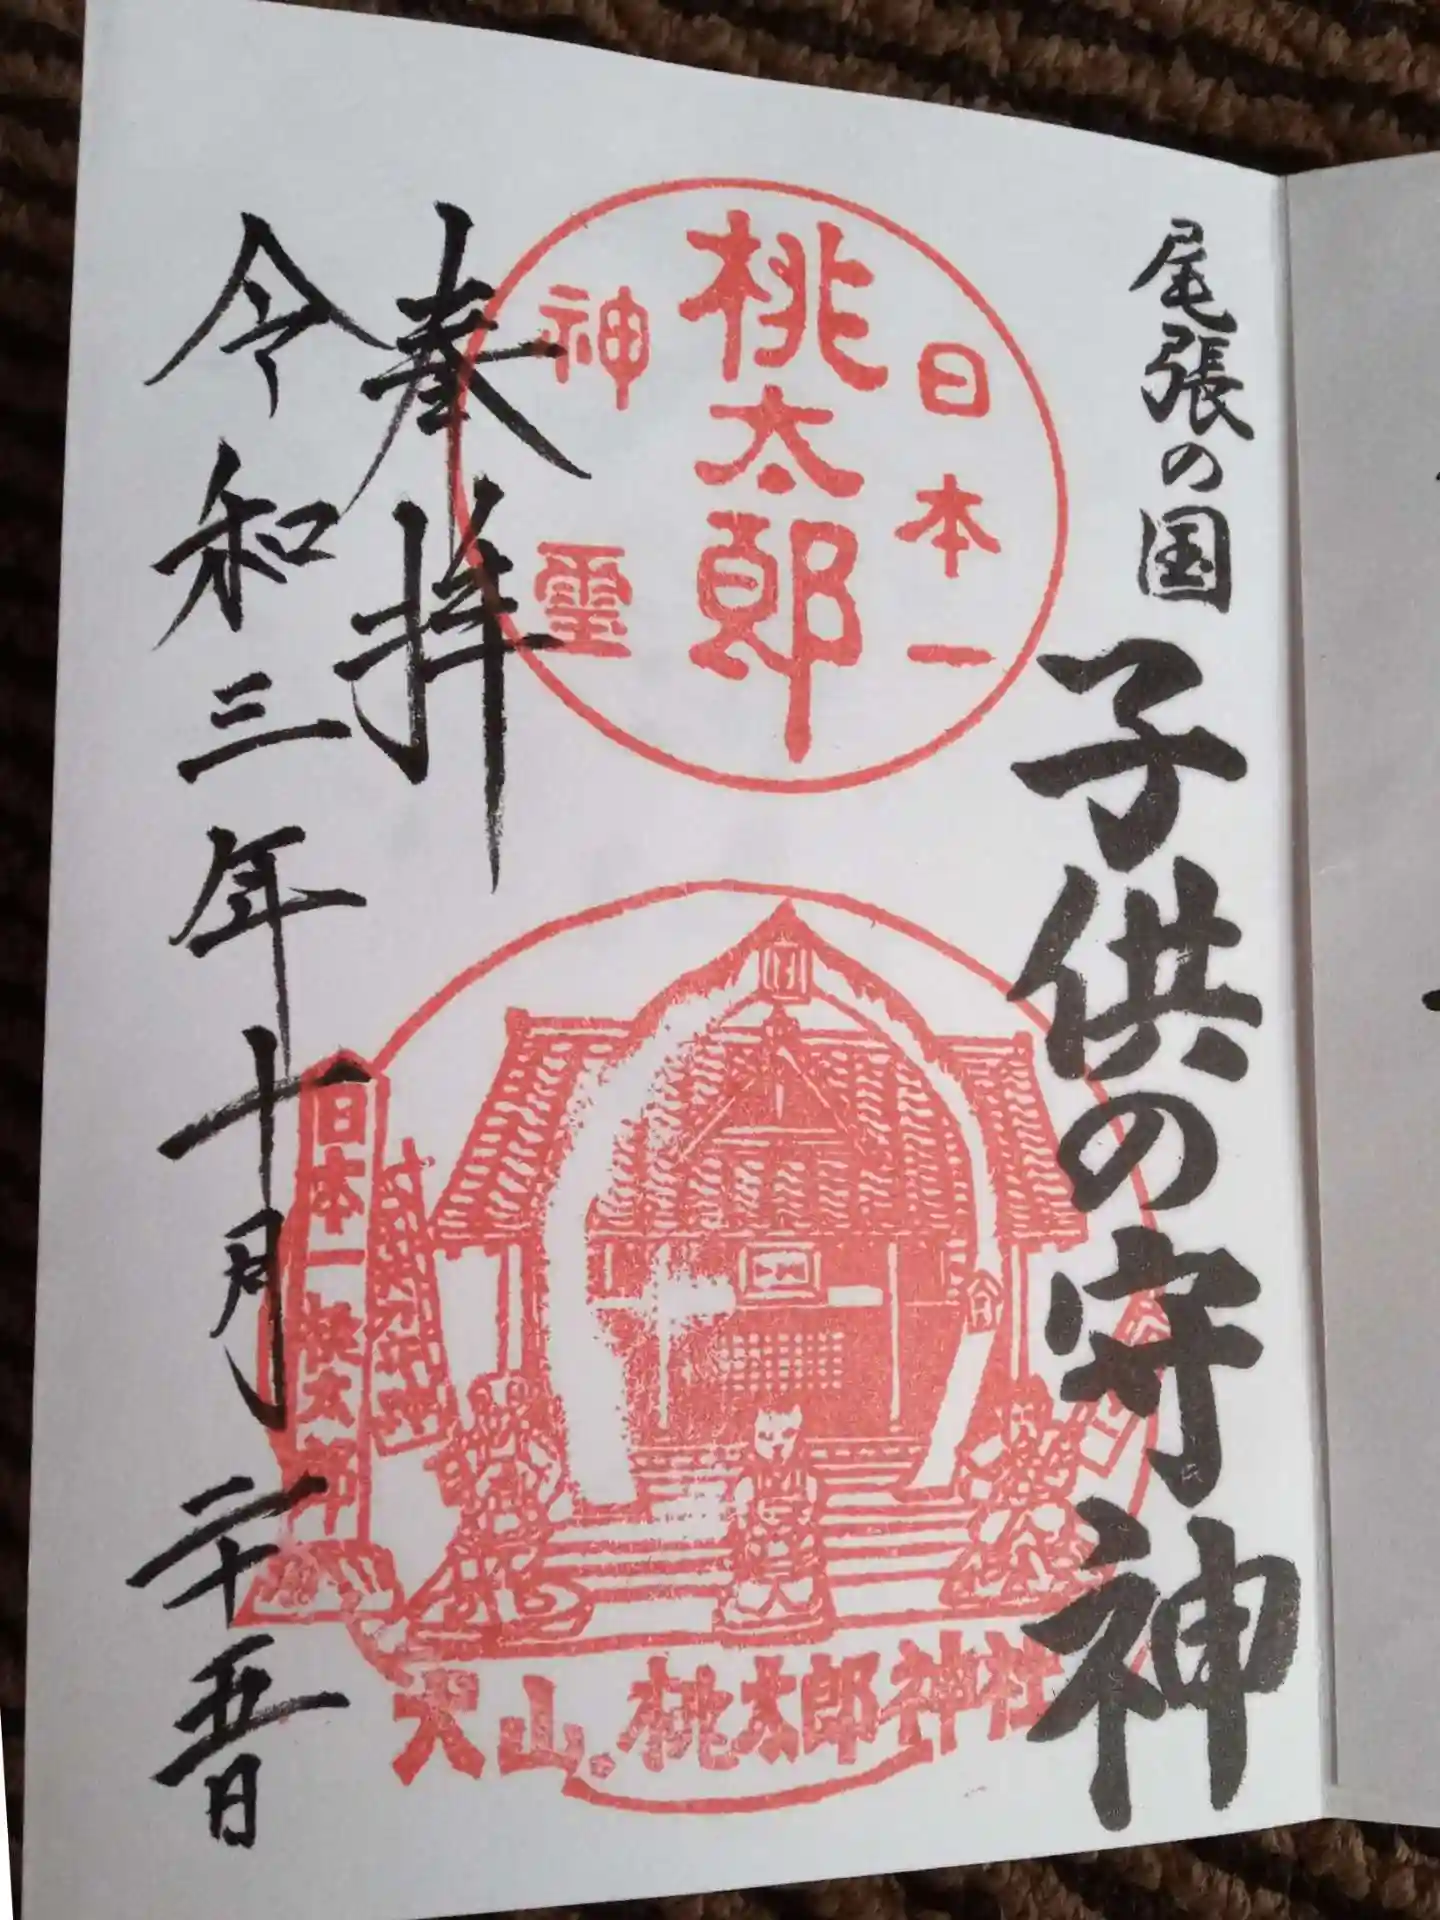 尾張の国
子供の守神
日本一
桃太郎
神霊
奉拝
令和三年十月二十五日
日本一桃太郎
犬山.桃太郎神社